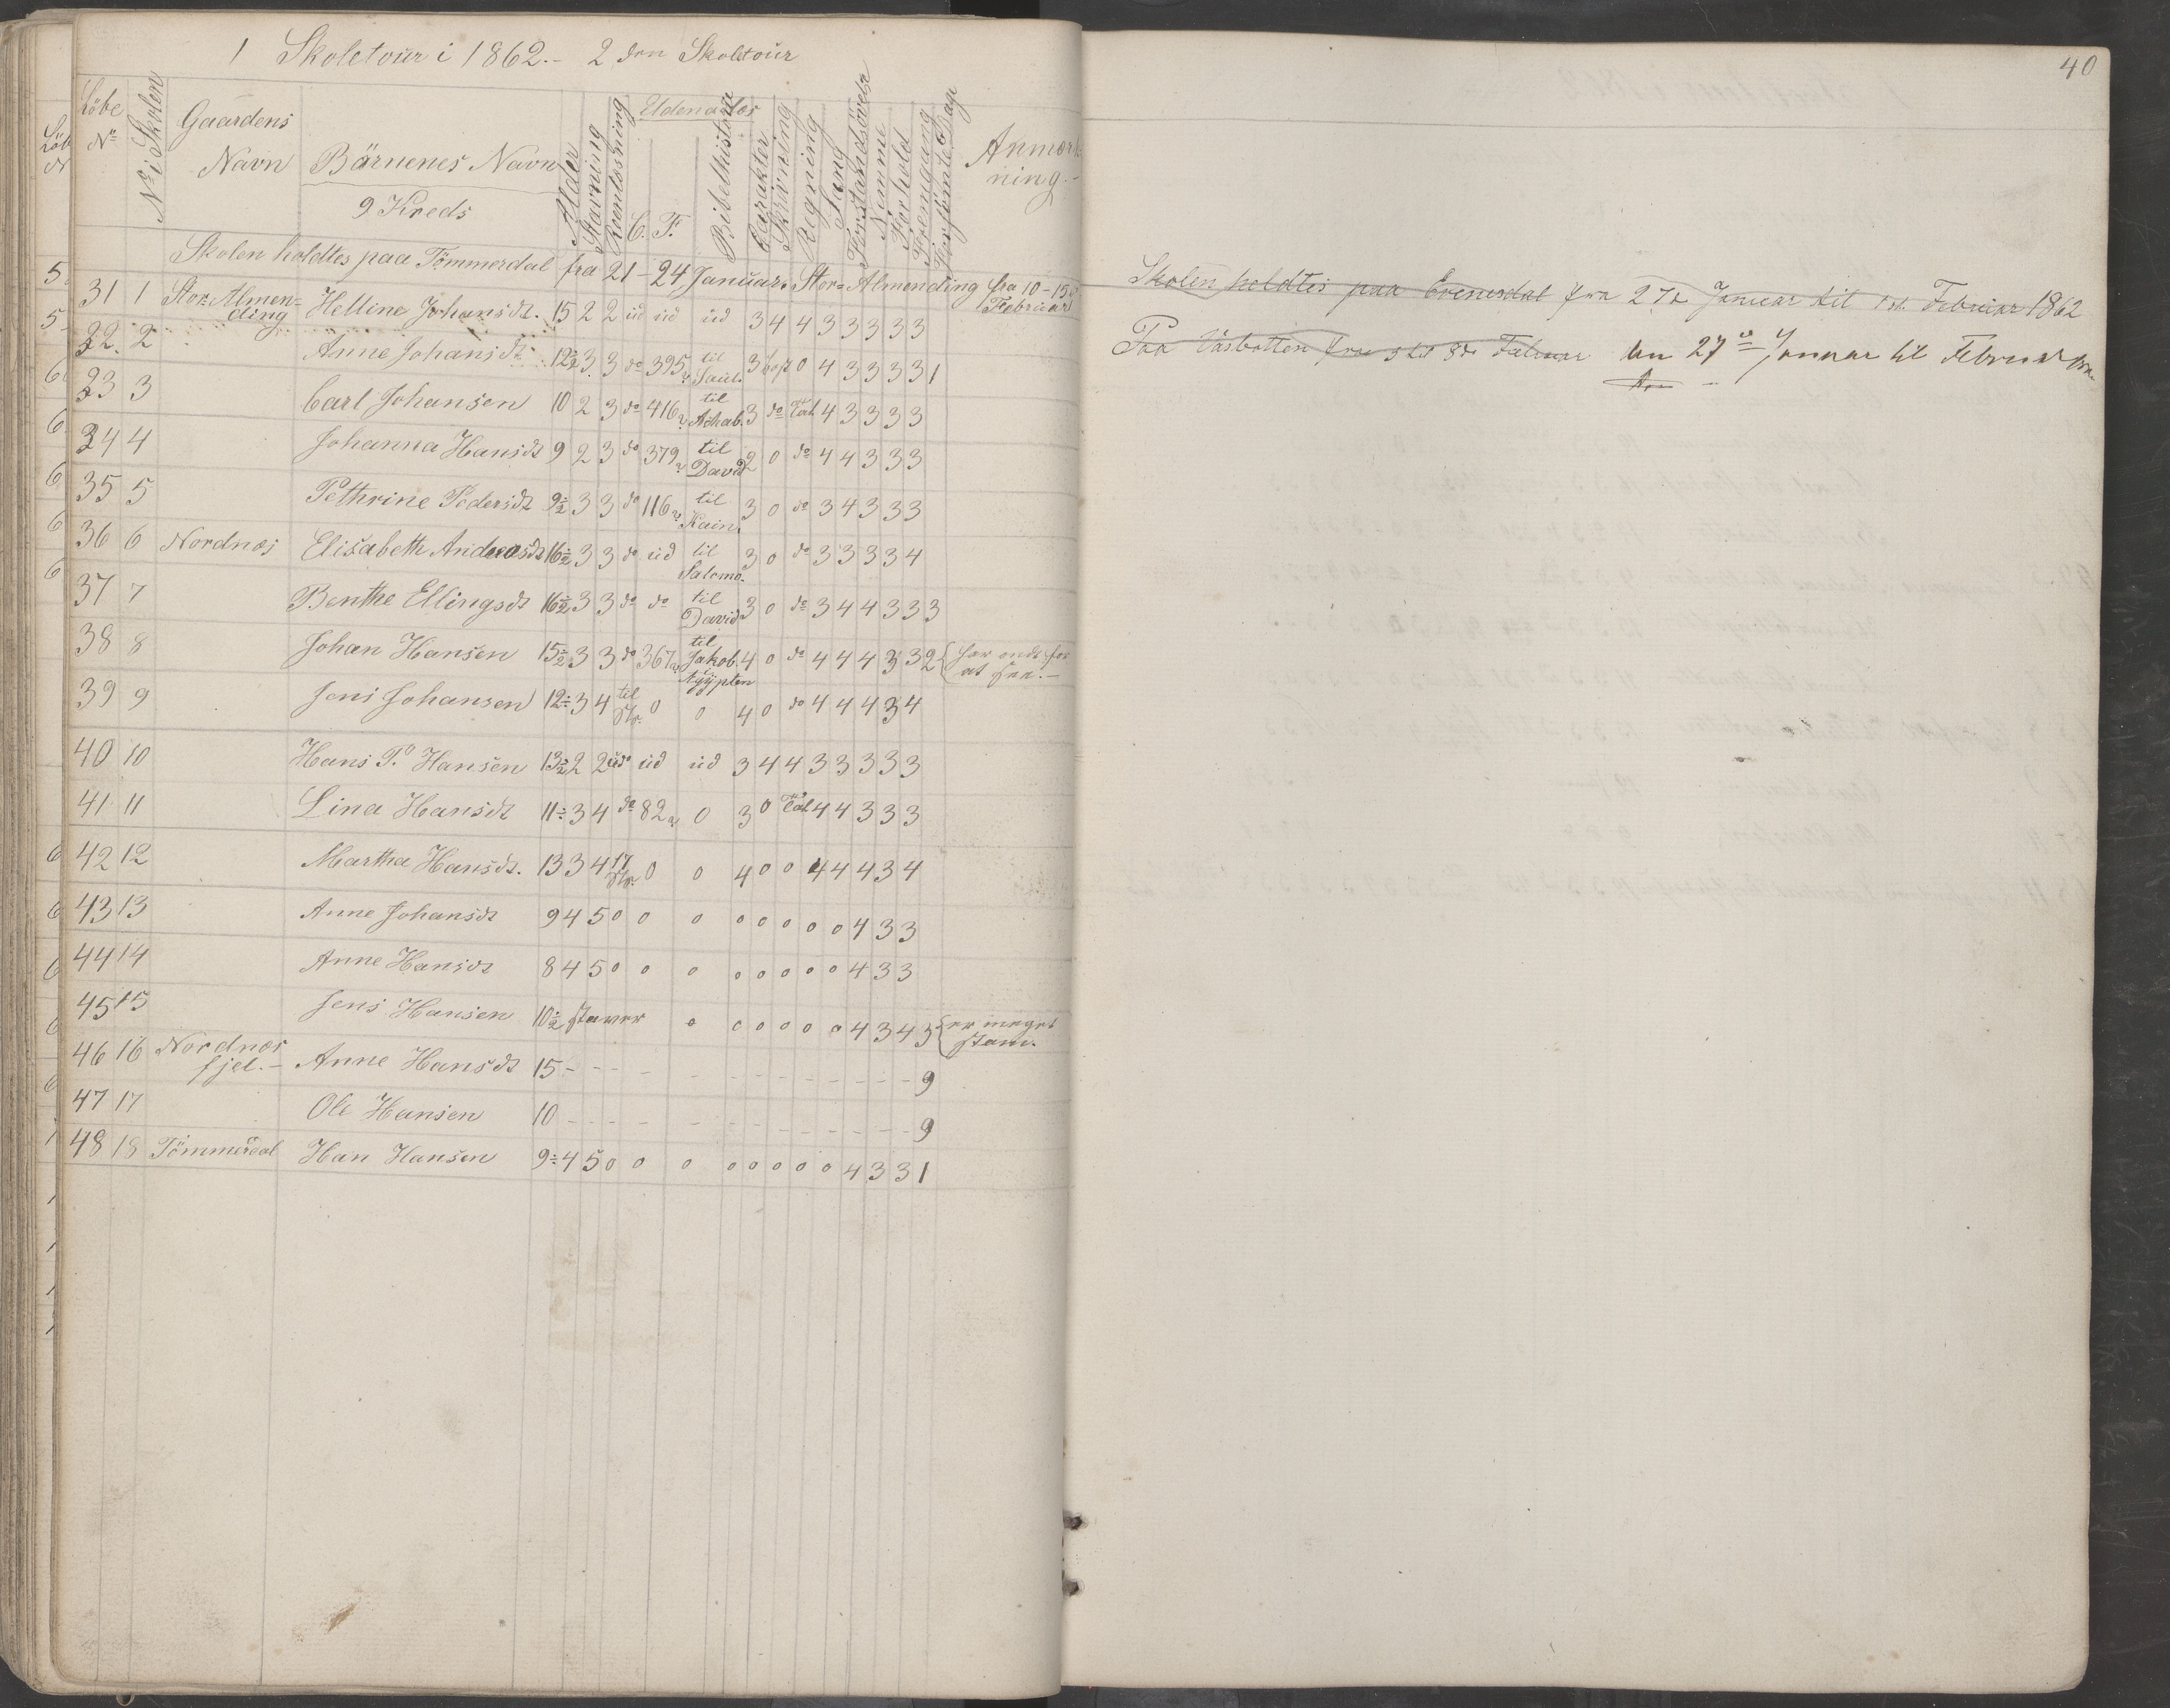 1 Skoletour i 1862.- 2 den Skoletour
Löbe N° N° i Skolen Gaardens Navn Börnenes Navn Alder Stavning Udenadlæs C. F. Bibelhistorie Carakter Skrivning Regning Sang Forstandsövels Nemme Forhold Fremgang Anmærkning.-
9 Kreds
Skolen holdtes paa Tömmerdal fra 21-24 Januar, Stor-Almending fra 10-15 Februar
31 1 Stor-Almending Helline Johansdt. 15 2 2 ud ud ud 3 4 4 3 3 3 3 3
32. 2 Anne Johansdt 12½ 3. 3 do 395 til Saul. 3 0 4 3 3 3 3 1
33 3 Carl Johansen 10 2 3 do 416 til Achab. 3 do Tal 4 3 3 3 3
34 4 Johanna Hansdt 9 2 3 do 379 til David 2 0 do 4 4 3 3 3
35 5 Pethrine Pedersdt 9½ 3 3 do 116 til Kain. 3 0 do 3 4 3 3 3
36 6 Nordnæs Elisabeth Andreasdt 16½ 3 3 do ud til Salomo. 3 0 do 3 3 3 3 4
37 7 Benthe Ellingsdt 16½ 3 3 do do til David 3 0 do 3 4 4 3 3 3
38 8 Johan Hansen 15½ 3 3 do 367 til Jakob i Ägypten 4 0 do 4 4 4 3 3 2 { har ondt for at
39 9 Jens Johansen 12½ 3 4 til 0 0 4 0 do 4 4 4 3 4
40 10 Hans P. Hansen 13½ 2 2 ud ud ud 3 4 4 3 3 3 3 3
41 11 Lina Hansdt 11½ 3 4 do 82 0 3 0 Tal 4 4 3 3 3
42 12 Martha Hansdt. 13 3 4 17 0 0 4 0 0 4 4 4 3 4
43 13 Anne Johansdt 9 4 5 0 0 0 0 0 0 0 0 4 3 3
44 14 Anne Hansdt 8 4 5 0 0 0 0 0 0 0 0 4 3 3
45 15 Jens Hansen 10½ staver 0 0 0 0 0 0 4 3 4 3 { er meget stam.
46 16 Nordnæsfjel.- Anne Hansdt 15 - - - - - - - - - - - - 9
47 17 Ole Hansen 10 - - - - - - - - - - - - 9
48 18 Tömmerdal Han Hansen 9½ 4 5 0 0 0 0 0 0 0 0 4 3 3 1
40
Skolen holdtes paa Evenesdal fra 27de Januar til 1st. Februar 1862
Paa Väsbotten fra 3 til 8de Februar den 27de Januar til Februar